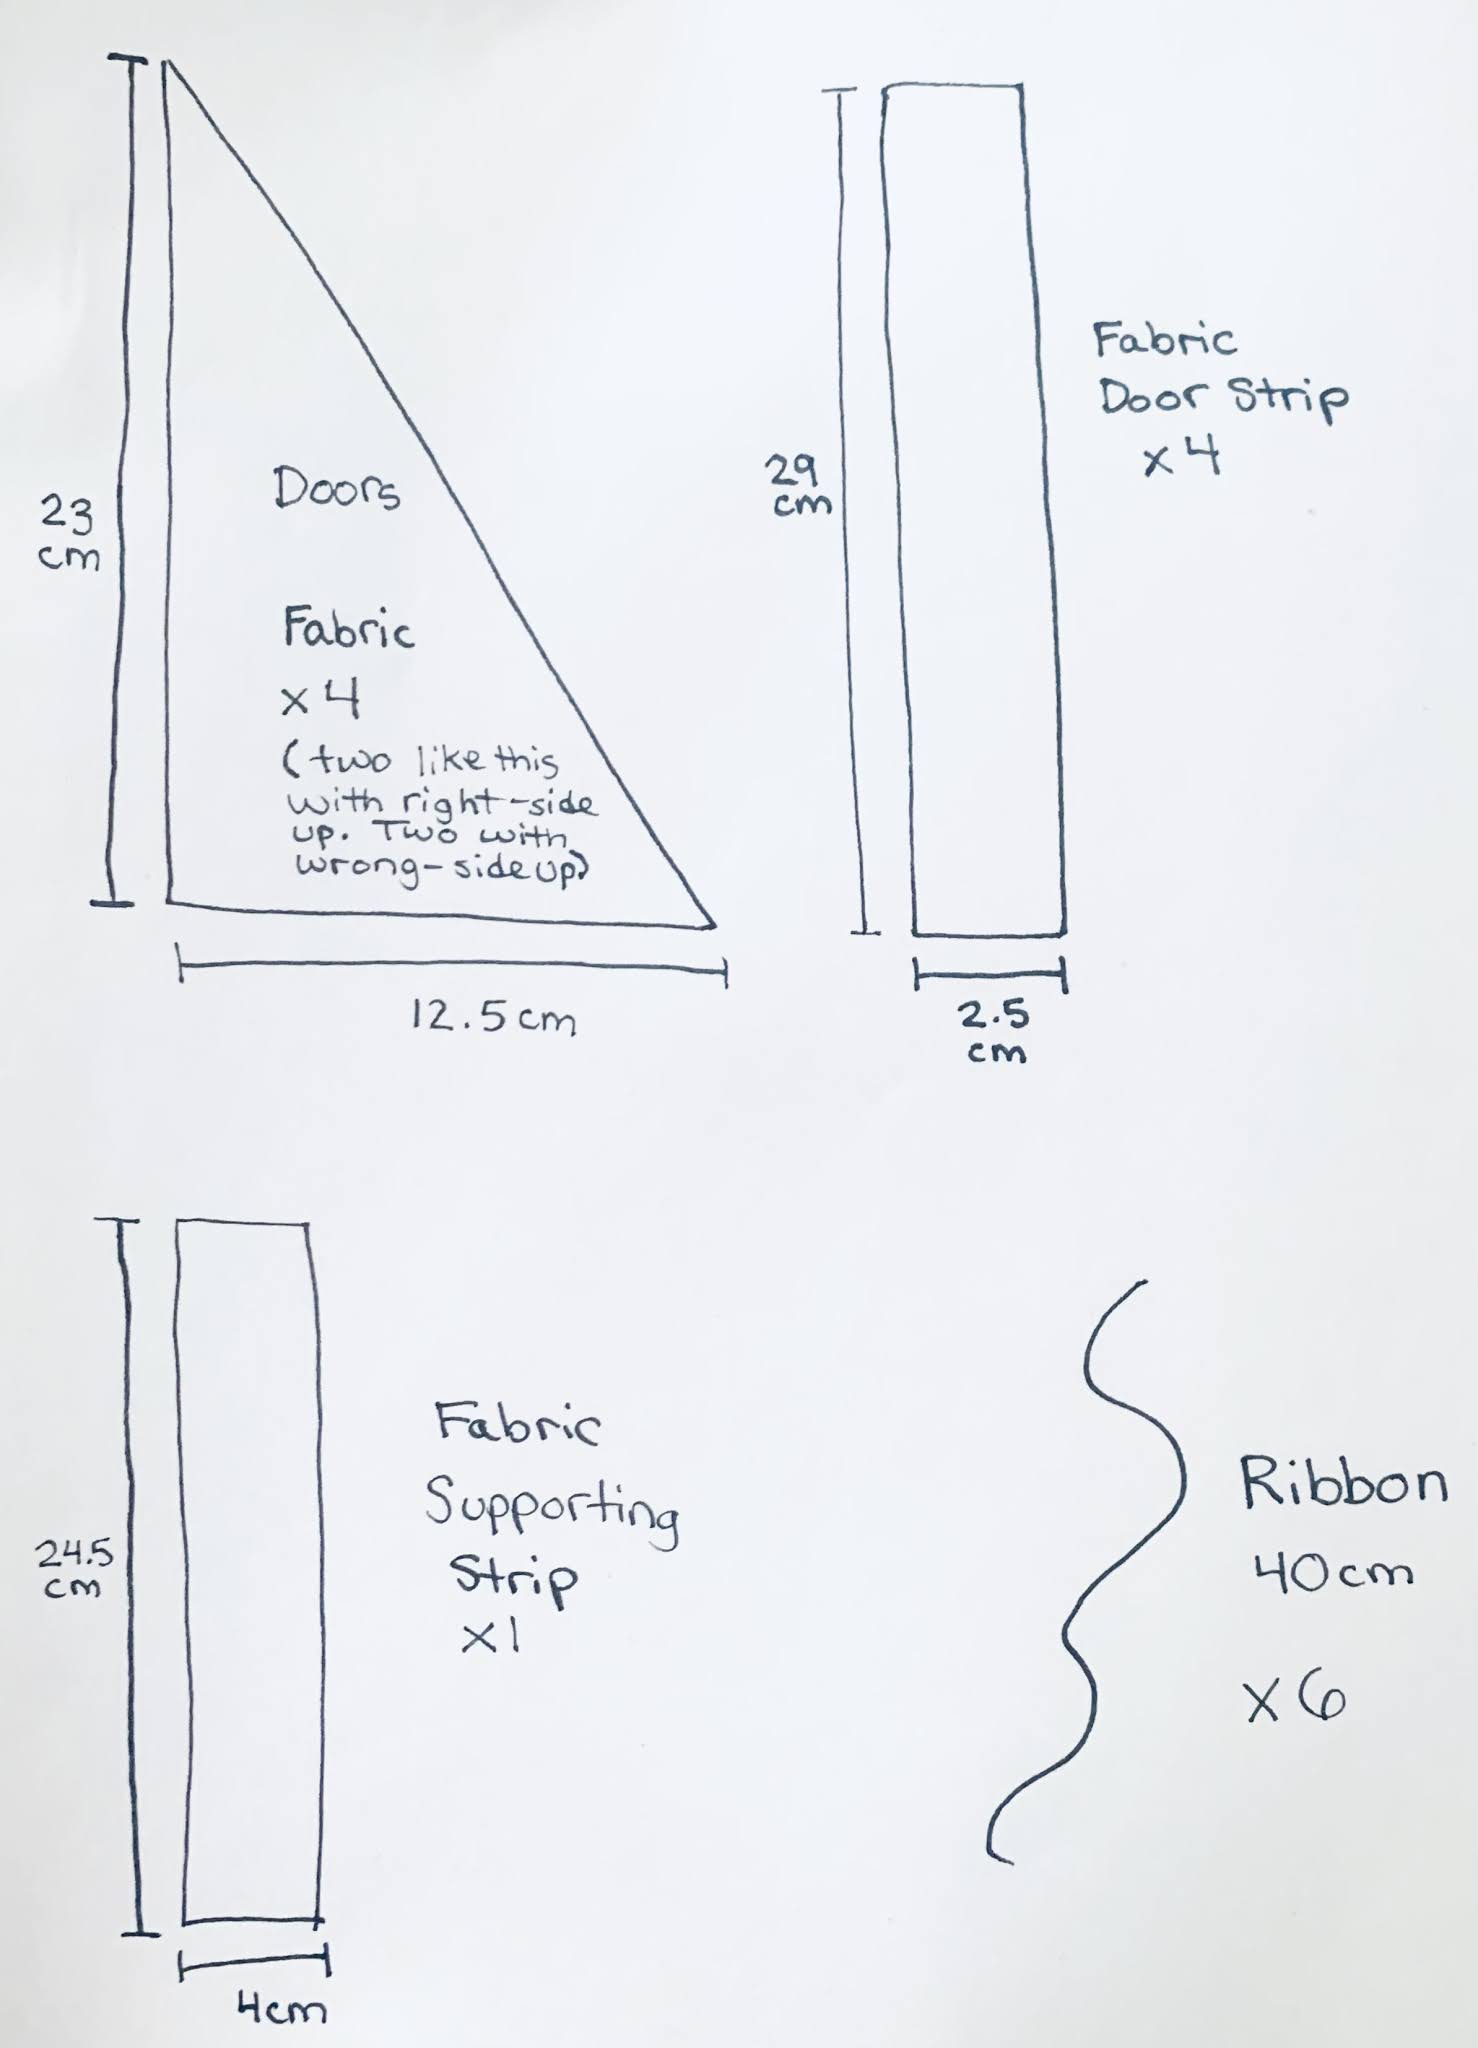 23
cm
Doors
Fabric
x 4
(two like this
with right-side
up. Two with
wrong-side up)
12.5 cm
29
cm
Fabric
Door Strip
x 4
2.5
cm
24.5
cm
Fabric
Supporting
Strip
x1
4cm
Ribbon
40cm
x 6